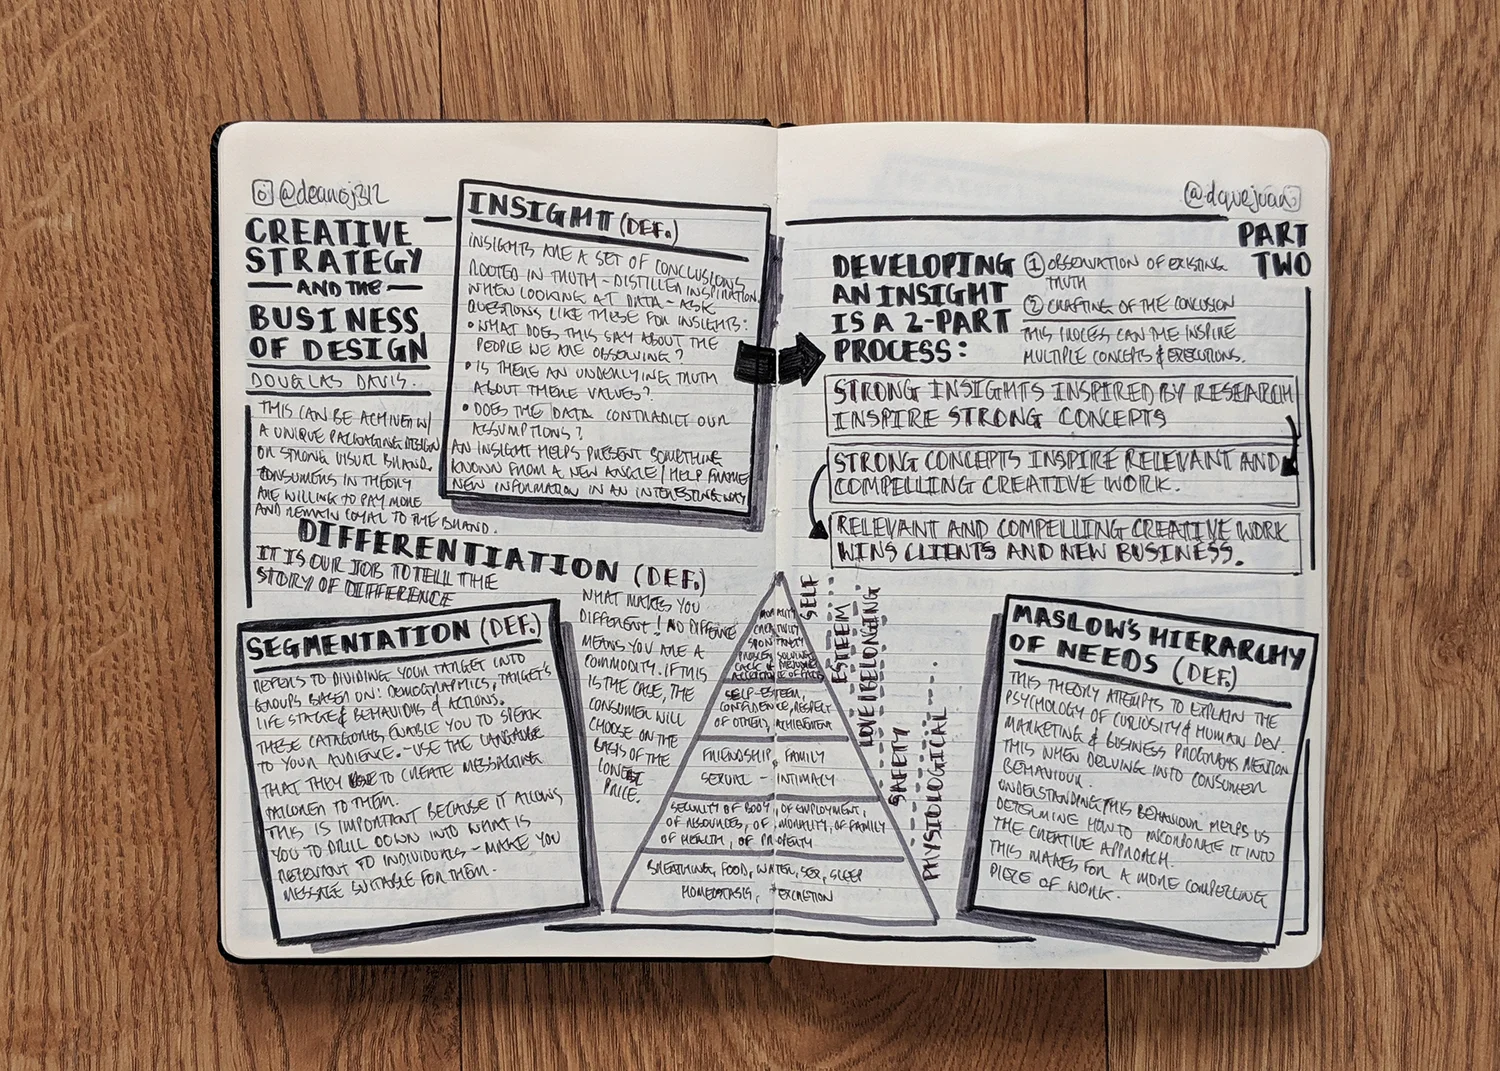 @deanoj312
CREATIVE
STRATEGY
AND THE
BUSINESS
OF DESIGN
DOUGLAS DAVIS.
THIS CAN BE ACHIEVED W/
A UNIQUE PACKAGING DESIGN
OR STRONG VISUAL BRAND.
CONSUMERS IN THEORY
ARE WILLING TO PAY MORE
AND REMAIN LOYAL TO THE BRAND.
INSIGHT (DEF.)
INSIGHTS ARE A SET OF CONCLUSIONS
ROOTED IN TRUTH - DISTILLED INSPIRATION.
WHEN LOOKING AT DATA - ASK
QUESTIONS LIKE THESE FOR INSIGHTS:
• WHAT DOES THIS SAY ABOUT THE
PEOPLE WE ARE OBSERVING?
• IS THERE AN UNDERLYING TRUTH
ABOUT THERE VALUES?
• DOES THE DATA CONTRADICT OUR
ASSUMPTIONS?
AN INSIGHT HELPS PRESENT SOMETHING
KNOWN FROM A NEW ANGLE / HELP FRAME
NEW INFORMATION IN AN INTERESTING WAY
DIFFERENTIATION (DEF.)
IT IS OUR JOB TO TELL THE
STORY OF DIFFERENCE
WHAT MAKES YOU
DIFFERENT! NO DIFFERENCE
MEANS YOU ARE A
COMMODITY. IF THIS
IS THE CASE, THE
CONSUMER WILL
CHOOSE ON THE
BASIS OF THE
PRICE.
SEGMENTATION (DEF.)
REFERS TO DIVIDING YOUR TARGET INTO
GROUPS BASED ON: DEMOGRAPHICS, TARGET'S
LIFE STAGE & BEHAVIOURS & ACTIONS.
THESE CATAGORIES ENABLE YOU TO SPEAK
TO YOUR AUDIENCE. - USE THE LANGUAGE
THAT THEY USE TO CREATE MESSAGING
TAILORED TO THEM.
THIS IS IMPORTANT BECAUSE IT ALLOWS
YOU TO DRILL DOWN INTO WHAT IS
RELEVANT TO INDIVIDUALS - MAKE YOU
MESSAGE SUITABLE FOR THEM.
MORALITY
CREATIVITY
SPONTANEITY
PROBLEM SOLVING
LACK OF PREJUDICE
ACCEPTANCE OF FACTS
SELF-ESTEEM,
CONFIDENCE, RESPECT
OF OTHERS, ACHIEVEMENT
FRIENDSHIP, FAMILY
SEXUAL - INTIMACY
SECURITY OF BODY, OF EMPLOYMENT,
OF RESOURCES, OF MORALITY, OF FAMILY
OF HEALTH, OF PROPERTY
BREATHING, FOOD, WATER, SEX, SLEEP
HOMEOSTASIS, EXCRETION
SELF
ESTEEM
LOVE/BELONGING
SAFETY
PHYSIOLOGICAL
@davejuan
PART
TWO
DEVELOPING
AN INSIGHT
IS A 2-PART
PROCESS:
① OBSERVATION OF EXISTING
TRUTH
② CRAFTING OF THE CONCLUSION
THIS PROCESS CAN THE INSPIRE
MULTIPLE CONCEPTS & EXECUTIONS.
STRONG INSIGHTS INSPIRED BY RESEARCH
INSPIRE STRONG CONCEPTS
STRONG CONCEPTS INSPIRE RELEVANT AND
COMPELLING CREATIVE WORK.
RELEVANT AND COMPELLING CREATIVE WORK
WINS CLIENTS AND NEW BUSINESS.
MASLOW'S HIERARCHY
OF NEEDS (DEF.)
THIS THEORY ATTEMPTS TO EXPLAIN THE
PSYCHOLOGY OF CURIOSITY & HUMAN DEV.
MARKETING & BUSINESS PROGRAMS MENTION
THIS WHEN DELVING INTO CONSUMER
BEHAVIOUR.
UNDERSTANDING THIS BEHAVIOUR HELPS US
DETERMINE HOW TO INCORPORATE IT INTO
THE CREATIVE APPROACH.
THIS MAKES FOR A MORE COMPELLING
PIECE OF WORK.